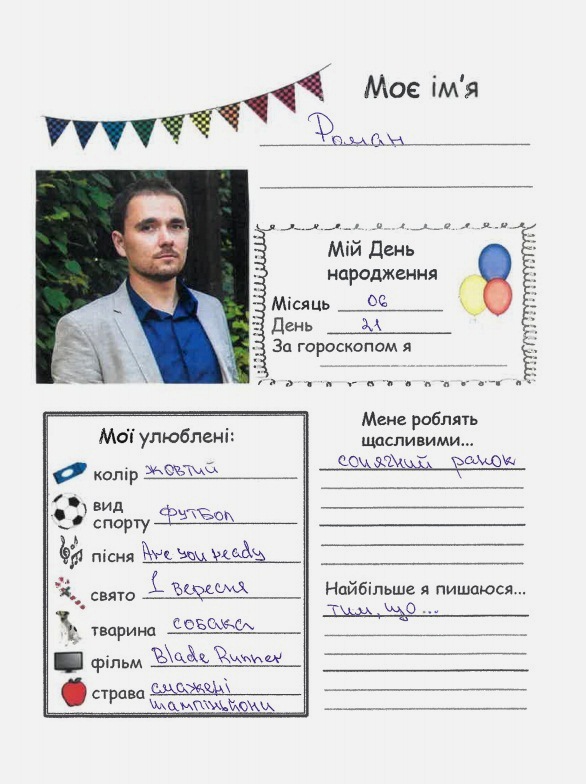 Моє ім'я
Роман
Мій День
народження
Місяць 06
День 21
За гороскопом я
Мої улюблені:
колір жовтий
вид
спорту футбол
пісня Are you ready
свято 1 вересня
тварина собака
фільм Blade Runner
страва смажені
шампіньйони
Мене роблять
щасливими...
сонячний ранок
Найбільше я пишаюся...
тим, що ...